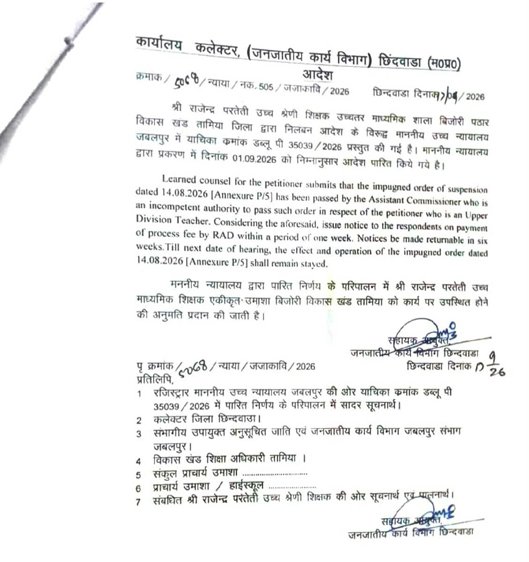 कार्यालय कलेक्टर, (जनजातीय कार्य विभाग) छिंदवाडा (म०प्र०)
आदेश
क्रमाक / 5068 / न्याया / नक. 505 / जजाकावि / 2026 छिन्दवाडा दिनाक /09 / 2026
श्री राजेन्द्र परतेती उच्च श्रेणी शिक्षक उच्चतर माध्यमिक शाला बिजोरी पठार
विकास खंड तामिया जिला द्वारा निलबन आदेश के विरूद्ध माननीय उच्च न्यायालय
जबलपुर में याचिका क्रमांक डब्लू पी 35039 / 2026 प्रस्तुत की गई है। माननीय न्यायालय
द्वारा प्रकरण में दिनांक 01.09.2026 को निम्नानुसार आदेश पारित किये गये है।
Learned counsel for the petitioner submits that the impugned order of suspension
dated 14.08.2026 [Annexure P/5] has been passed by the Assistant Commissioner who is
an incompetent authority to pass such order in respect of the petitioner who is an Upper
Division Teacher. Considering the aforesaid, issue notice to the respondents on payment
of process fee by RAD within a period of one week. Notices be made returnable in six
weeks.Till next date of hearing, the effect and operation of the impugned order dated
14.08.2026 [Annexure P/5] shall remain stayed.
माननीय न्यायालय द्वारा पारित निर्णय के परिपालन में श्री राजेन्द्र परतेती उच्च
माध्यमिक शिक्षक एकीकृत-उमाशा बिजोरी विकास खंड तामिया को कार्य पर उपस्थित होने
की अनुमति प्रदान की जाती है।
सहायक आयुक्त,
जनजातीय कार्य विभाग छिन्दवाडा
पृ क्रमांक / 5068 / न्याया / जजाकावि / 2026 छिन्दवाडा दिनांक 9/26
प्रतिलिपि,
1 रजिस्ट्रार माननीय उच्च न्यायालय जबलपुर की ओर याचिका क्रमांक डब्लू पी
35039 / 2026 में पारित निर्णय के परिपालन में सादर सूचनार्थ।
2 कलेक्टर जिला छिन्दवाडा।
3 संभागीय उपायुक्त अनुसूचित जाति एवं जनजातीय कार्य विभाग जबलपुर संभाग
जबलपुर।
4 विकास खंड शिक्षा अधिकारी तामिया ।
5 संकुल प्राचार्य उमाशा ......................
6 प्राचार्य उमाशा / हाईस्कूल ..................
7 संबधित श्री राजेन्द्र परतेती उच्च श्रेणी शिक्षक की ओर सूचनार्थ एवं पालनार्थ।
सहायक आयुक्त,
जनजातीय कार्य विभाग छिन्दवाडा